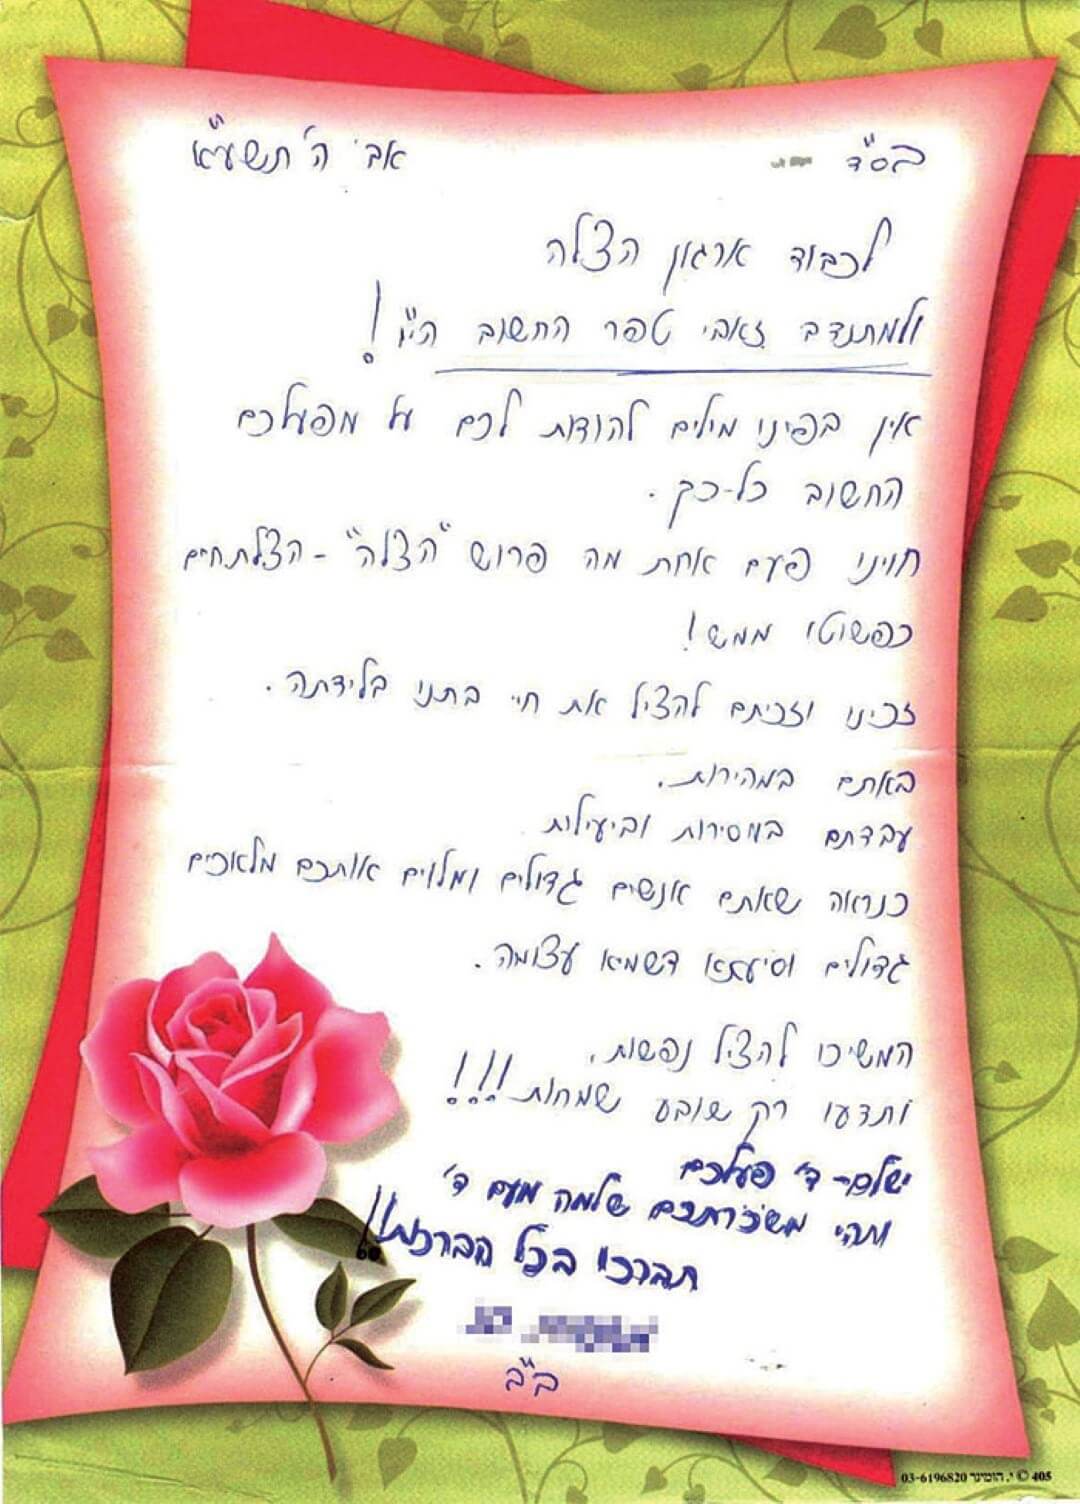 בס"ד אב ה' תשע"א
לכבוד ארגון הצלה
ולמתנדב זאבי טפר החשוב הי"ו!
אין בפינו מילים להודות לכם על מפעלכם
החשוב כל-כך.
חוינו פעם אחת מה פרוש "הצלה" - הצלת חיים
כפשוטו ממש!
זכינו וזכיתם להציל את חיי בתנו בלידתה.
באתם במהירות.
עבדתם במסירות וביעילות
כנראה שאתם אנשים גדולים ומלוים אותכם מלאכים
גדולים וסיעתא דשמיא עצומה.
המשיכו להציל נפשות,
ותדעו רק שובע שמחות!!!
ישלם- ד' פעלכם
ותהי משכורתכם שלמה מעם ד'
תברכו בכל הברכות!!
ב"ב
405 © י. הומינר 03-6196820